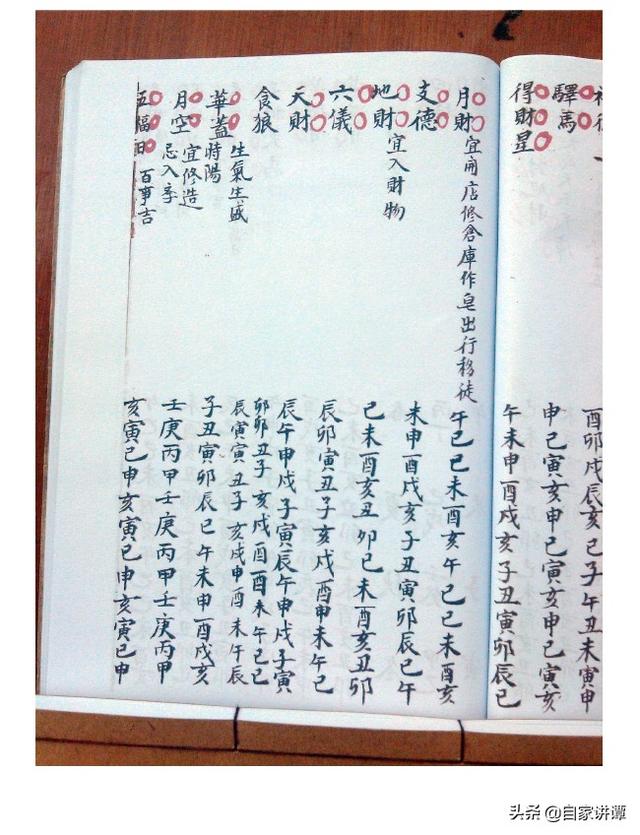 酉卯戌辰亥巳子午丑未寅申
驛馬 申巳寅亥申巳寅亥申巳寅亥
得財星 午未申酉戌亥子丑寅卯辰巳
月財 宜開店修倉庫作皂出行移徒 午巳巳未酉亥午巳巳未酉亥
支德 未申酉戌亥子丑寅卯辰巳午
地財 宜入財物 巳未酉亥丑卯巳未酉亥丑卯
六儀 辰卯寅丑子亥戌酉申未午巳
天財 辰午申戌子寅辰午申戌子寅
食狼 卯卯丑子亥戌酉酉未午巳巳
生氣生盛 辰寅寅丑子亥戌申酉未午辰
華蓋 時陽 子丑寅卯辰巳午未申酉戌亥
月空 宜修造 忌入季 壬庚丙甲壬庚丙甲壬庚丙甲
五福日 百事吉 亥寅巳申亥寅巳申亥寅巳申
头条 @自家讲谭